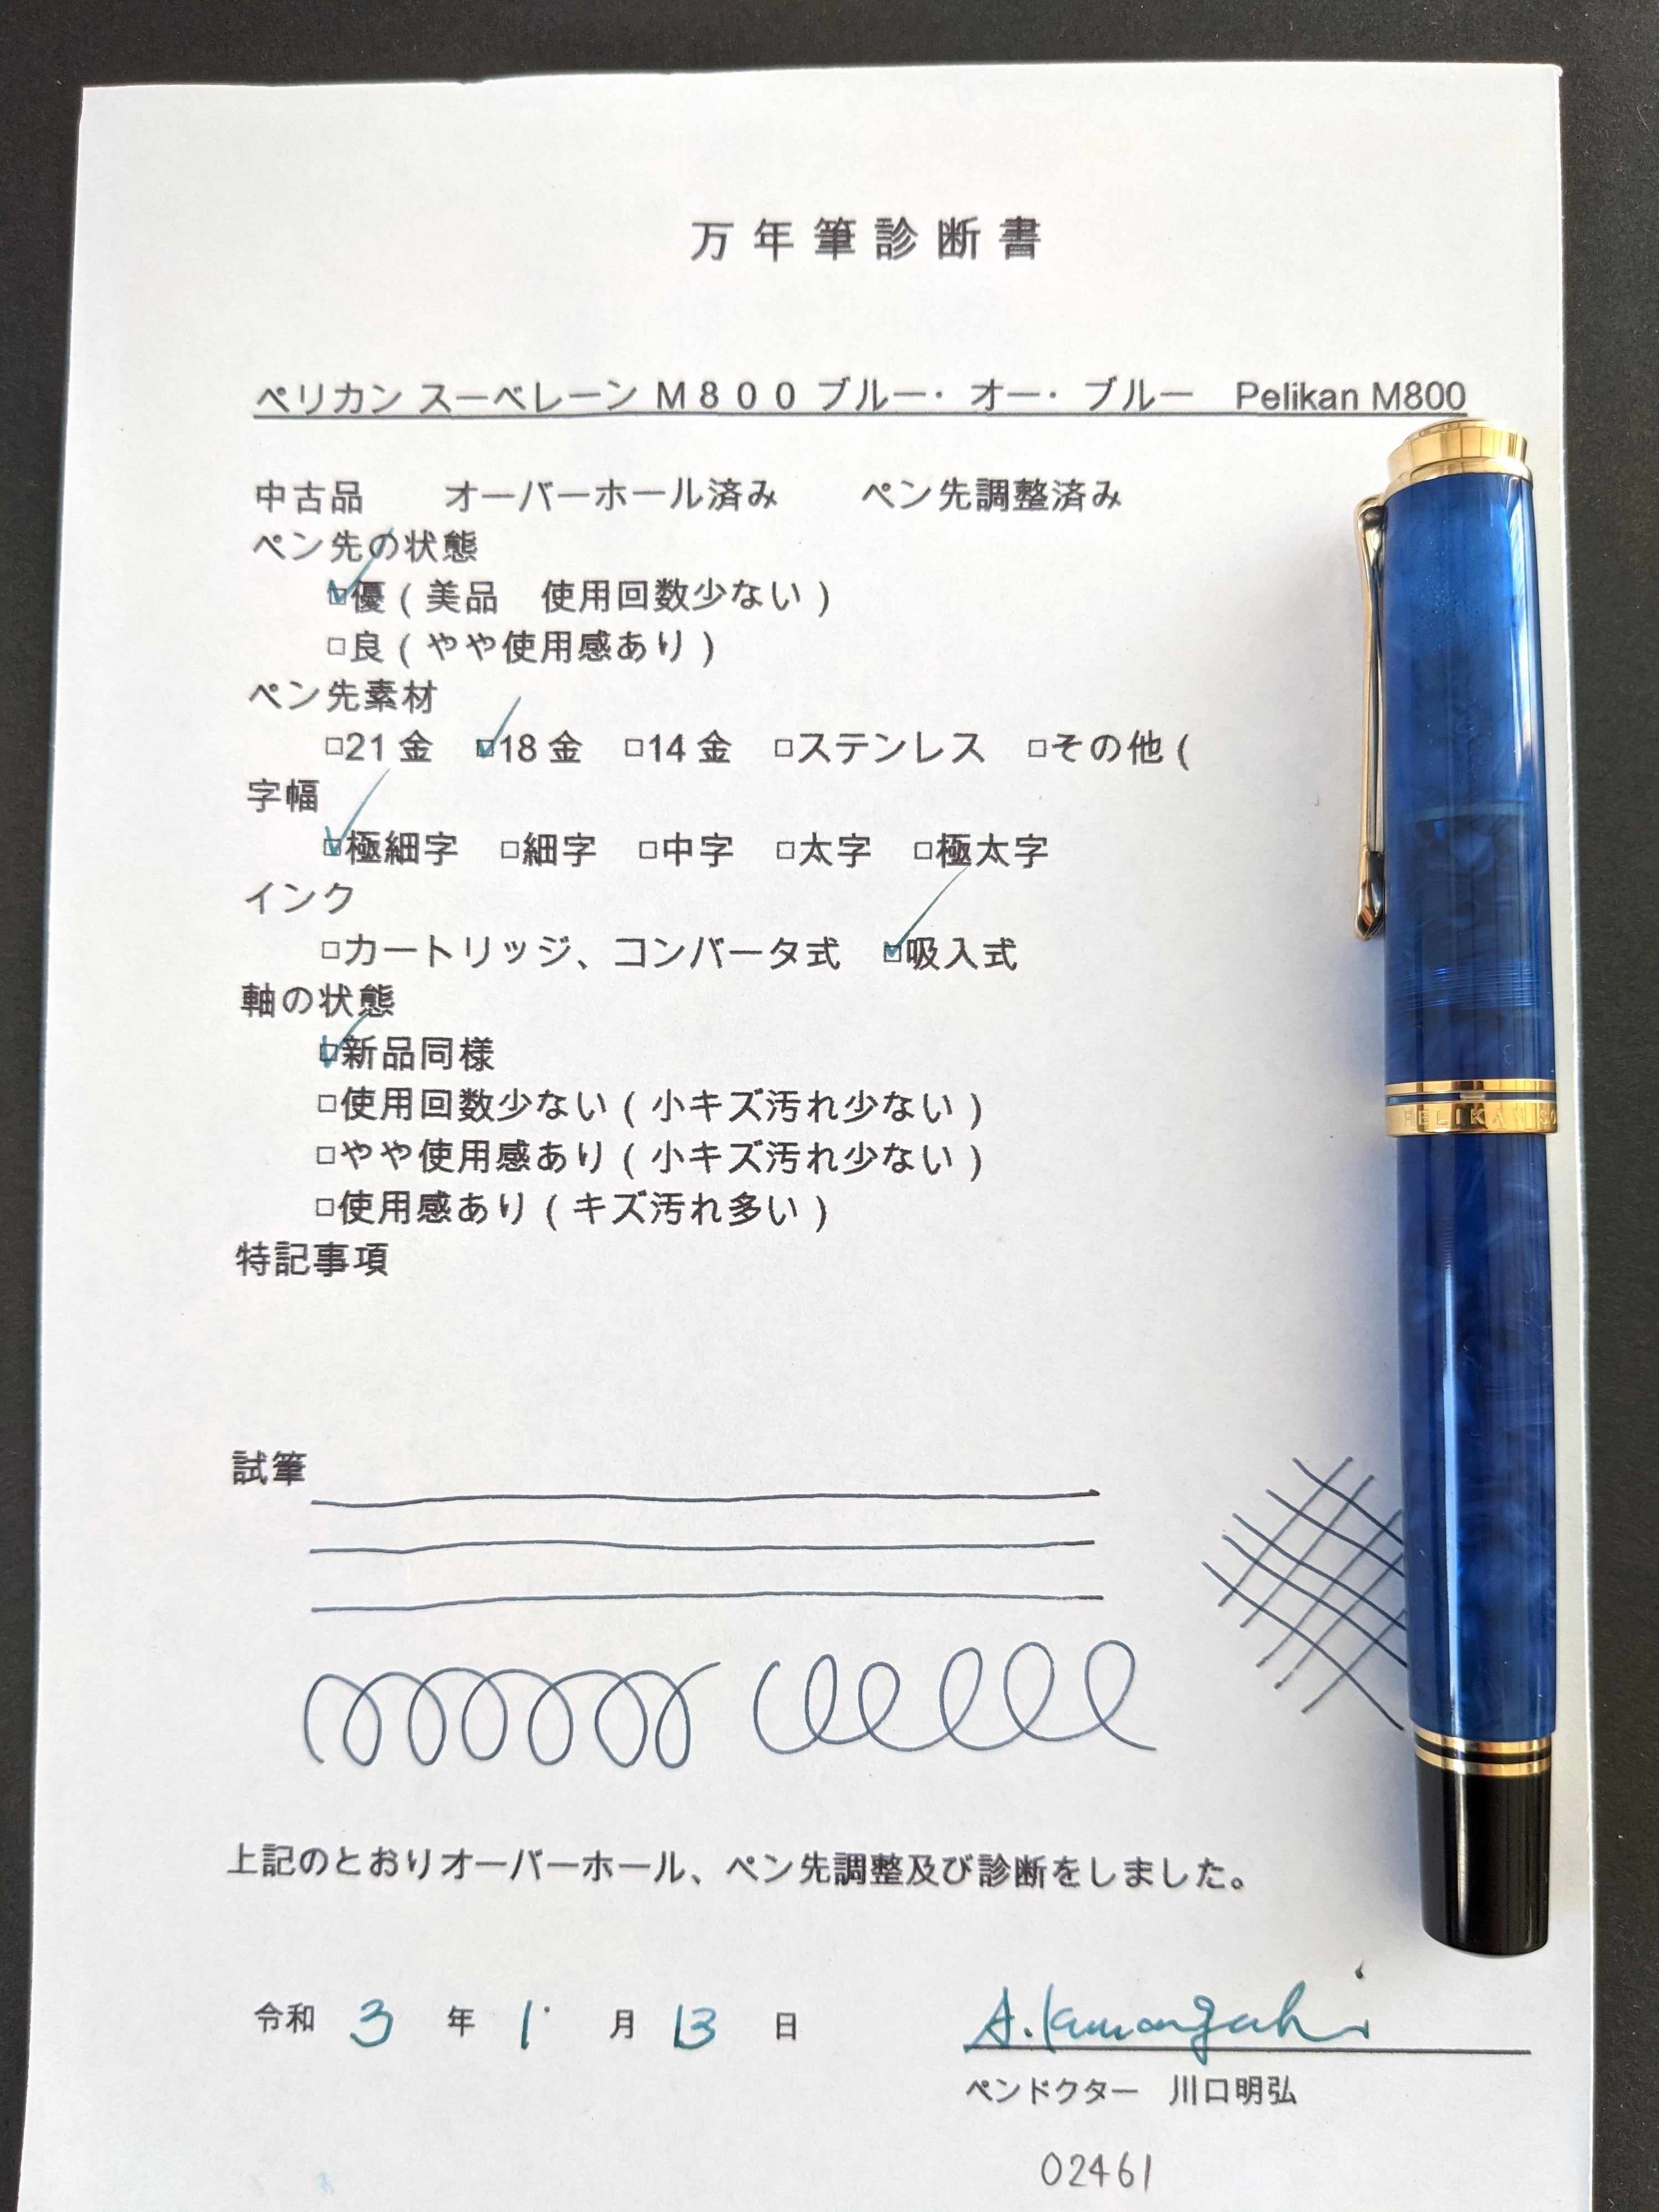 万年筆診断書
ペリカン スーベレーン M800 ブルー・オー・ブルー Pelikan M800
中古品 オーバーホール済み ペン先調整済み
ペン先の状態
☑優(美品 使用回数少ない)
□良(やや使用感あり)
ペン先素材
□21金 ☑18金 □14金 □ステンレス □その他(
字幅
☑極細字 □細字 □中字 □太字 □極太字
インク
□カートリッジ、コンバータ式 ☑吸入式
軸の状態
☑新品同様
□使用回数少ない(小キズ汚れ少ない)
□やや使用感あり(小キズ汚れ少ない)
□使用感あり(キズ汚れ多い)
特記事項
試筆
上記のとおりオーバーホール、ペン先調整及び診断をしました。
令和 3 年 1 月 13 日 A.Kawaguchi
ペンドクター 川口明弘
02461
PELIKAN SO